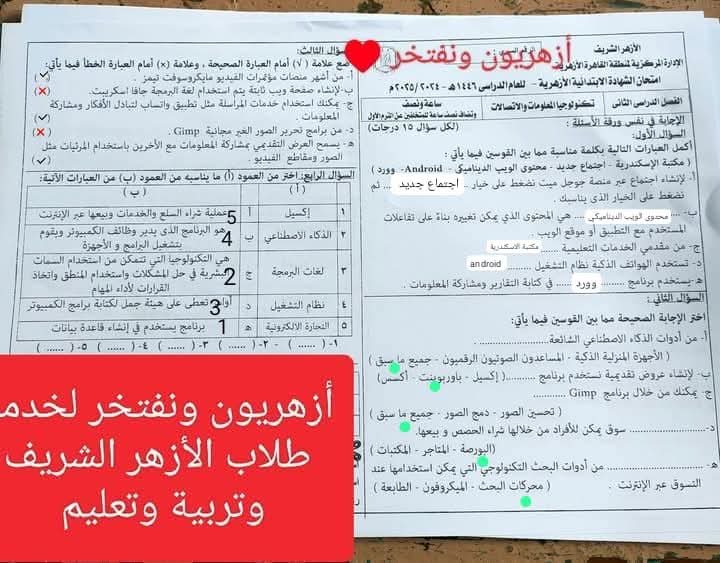 أزهريون ونفتخر
الأزهر الشريف
الإدارة المركزية لمنطقة القاهرة الأزهرية
امتحان الشهادة الابتدائية الأزهرية - للعام الدراسي ١٤٤٦هـ - ٢٠٢٤ / ٢٠٢٥م
الفصل الدراسي الثاني
تكنولوجيا المعلومات والاتصالات
ساعة ونصف
وتضاف نصف ساعة للمتخلفين عن الترم الأول
الإجابة في نفس ورقة الأسئلة :
(لكل سؤال ١٥ درجات)
السؤال الأول:
أكمل العبارات التالية بكلمة مناسبة مما بين القوسين فيما يأتي :
( مكتبة الإسكندرية - اجتماع جديد - محتوى الويب الديناميكي - Android - وورد )
أ- لإنشاء اجتماع عبر منصة جوجل ميت نضغط على خيار .. اجتماع جديد ... ثم
نضغط على الخيار الذي يناسبك .
ب- محدوى الويب الديناميكي ... هي المحتوى الذي يمكن تغييره بناءً على تفاعلات
المستخدم مع التطبيق أو موقع الويب .
ج- من مقدمي الخدمات التعليمية ...... مكتبة الاسكندرية
د- تستخدم الهواتف الذكية نظام التشغيل ......... android
هـ- يستخدم برنامج ........ وورد ..... في كتابة التقارير ومشاركة المعلومات .
السؤال الثاني :
اختر الإجابة الصحيحة مما بين القوسين فيما يأتي:
أ- من أدوات الذكاء الاصطناعي الشائعة......................
( الأجهزة المنزلية الذكية - المساعدون الصوتيون الرقميون - جميع ما سبق )
ب- لإنشاء عروض تقديمية نستخدم برنامج ..........( إكسيل - باوربوينت - أكسس)
ج- يمكنك من خلال برنامج Gimp ..............
( تحسين الصور - دمج الصور - جميع ما سبق )
د- ................ سوق يمكن للأفراد من خلالها شراء الحصص و بيعها.
(البورصة - المتاجر - المكتبات )
هـ- .................... من أدوات البحث التكنولوجي التي يمكن استخدامها عند
التسوق عبر الإنترنت . ( محركات البحث - الميكروفون - الطابعة )
السؤال الثالث:
ضع علامة ( √ ) أمام العبارة الصحيحة ، وعلامة (×) أمام العبارة الخطأ فيما يأتي:
أ- من أشهر منصات مؤتمرات الفيديو مايكروسوفت تيمز . (✓)
ب- لإنشاء صفحة ويب ثابتة يتم استخدام لغة البرمجة جافا اسكريبت. (×)
ج- يمكنك استخدام خدمات المراسلة مثل تطبيق واتساب لتبادل الأفكار ومشاركة
المعلومات . (✓)
د- من برامج تحرير الصور الغير مجانية Gimp . (×)
هـ- يسمح العرض التقديمي بمشاركة المعلومات مع الآخرين باستخدام المرئيات مثل
الصور ومقاطع الفيديو . (✓)
السؤال الرابع: اختر من العمود (أ) ما يناسبه من العمود (ب) من العبارات الآتية:
( أ ) ( ب )
١ إكسيل أ 5 عملية شراء السلع والخدمات وبيعها عبر الإنترنت
٢ الذكاء الاصطناعي ب 4 هو البرنامج الذى يدير وظائف الكمبيوتر ويقوم
بتشغيل البرامج و الأجهزة
٣ لغات البرمجة ج 2 هي التكنولوجيا التي تتمكن من استخدام السمات
البشرية في حل المشكلات واستخدام المنطق واتخاذ
القرارات لأداء المهام
٤ نظام التشغيل د 3 تعطى على هيئة جمل لكتابة برامج الكمبيوتر
٥ التجارة الالكترونية هـ 1 برنامج يستخدم في إنشاء قاعدة بيانات
١- ( ...... ) ٢- ( ...... ) ٣- ( ...... ) ٤- ( ...... ) ٥- ( ...... )
أزهريون ونفتخر لخدمة
طلاب الأزهر الشريف
وتربية وتعليم